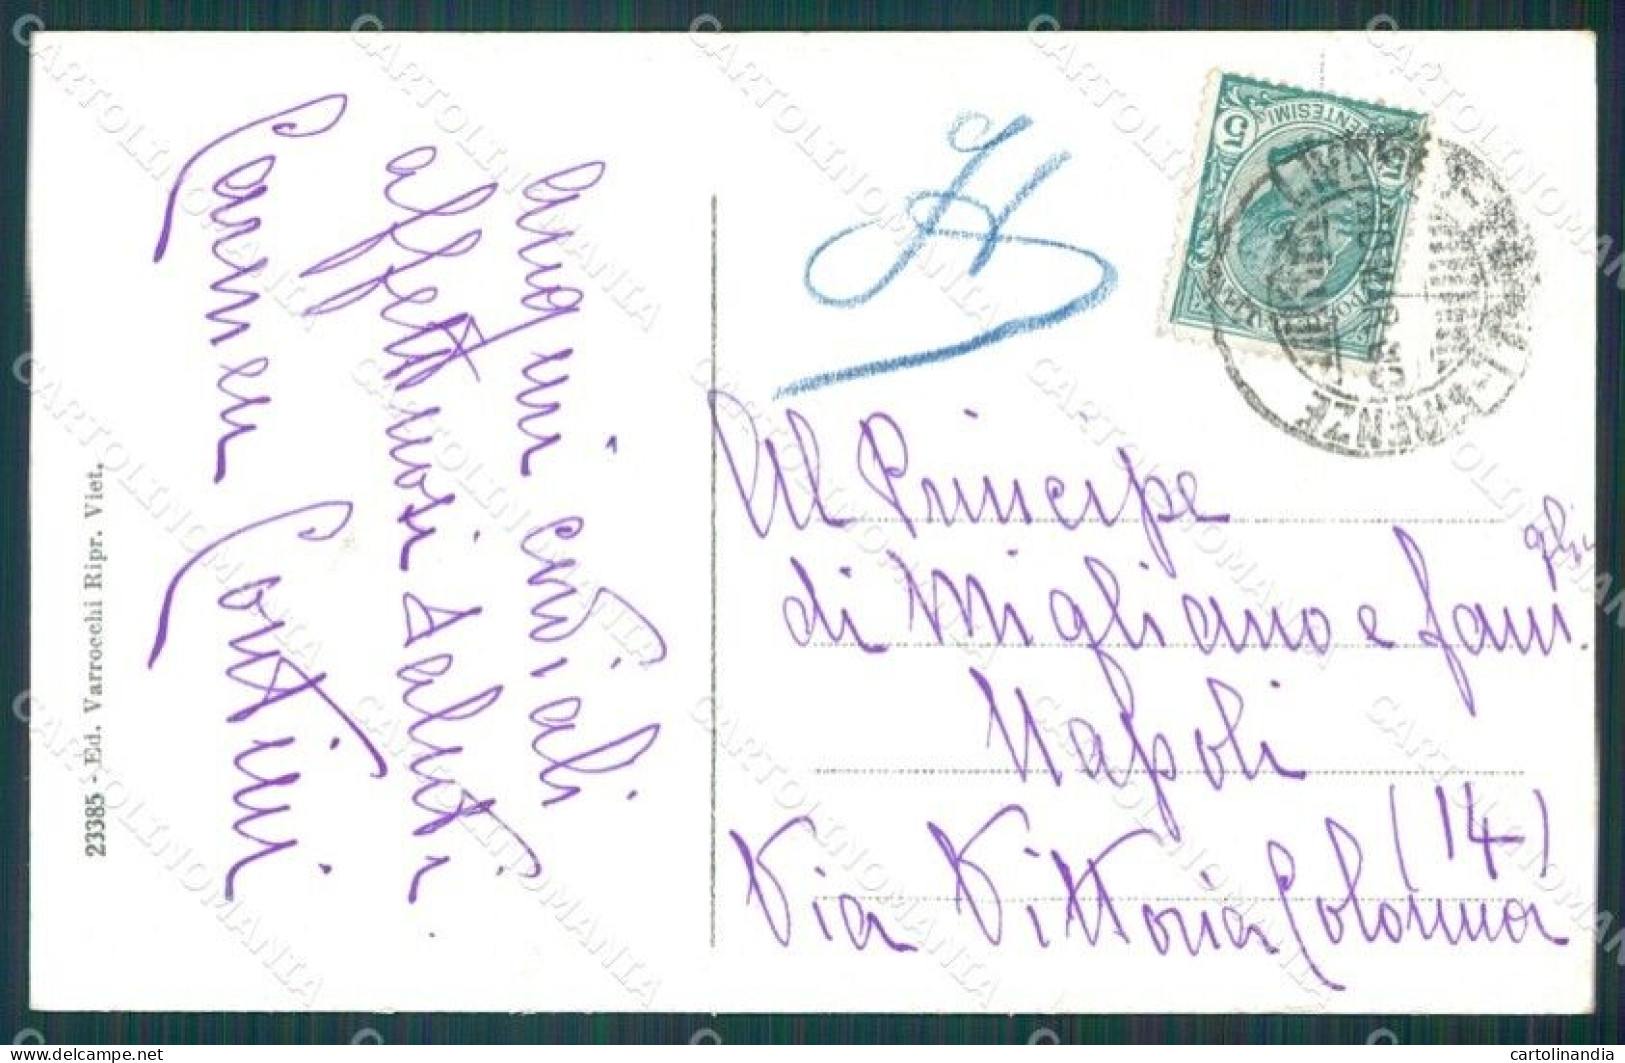 auguri cordiali
affettuosi saluti
Carmen Contini
23385 - Ed. Varrocchi Ripr. Viet.
H
5 CENTESIMI 5
FIRENZE
Al Principe
di Migliano e fami
glia
Napoli
(14)
Via Vittoria Colonna
CARTOLINOMANIA
cartolinandia